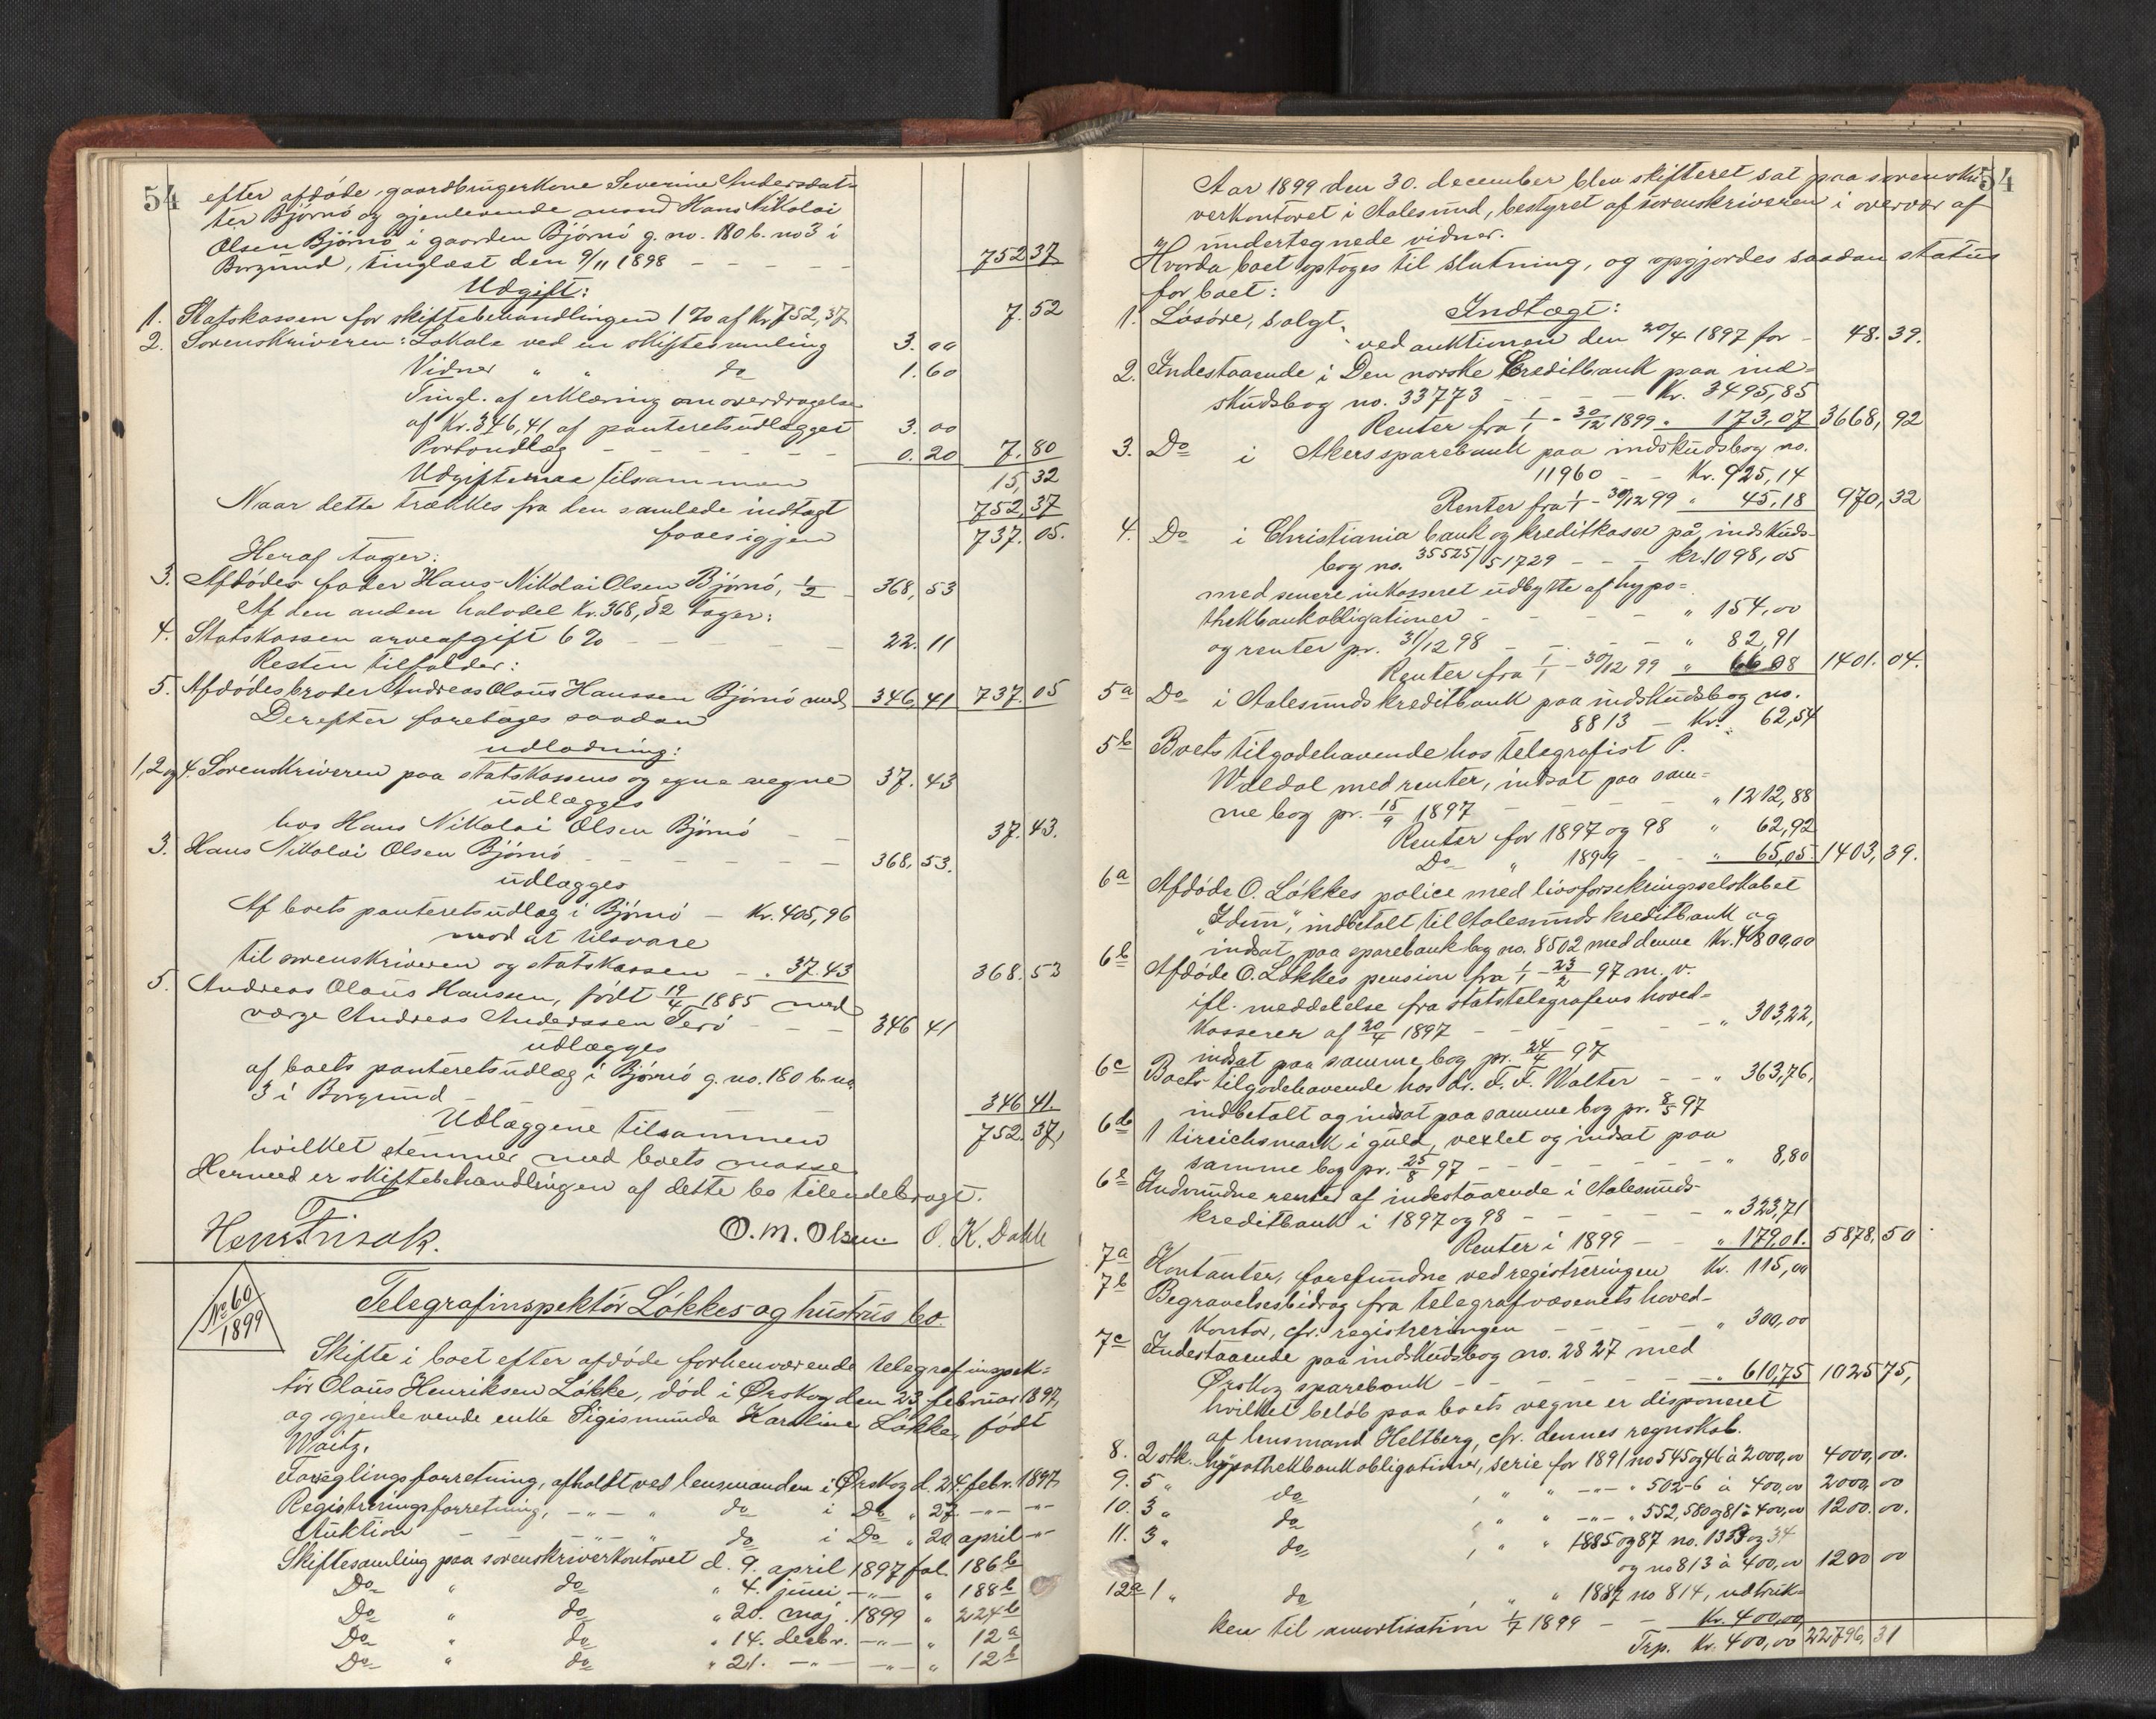 54
efter afdøde gaardbrugerkone Severine Andersdat-
ter Bjørnø og gjenlevende mand Hans Nikolai
Olsen Bjørnø i gaarden Bjørnø g. no. 180 b. no 3 i
Borgund, tinglæst den 9/11 1898 — — — — — 752 37
Udgift:
1. Statskassen for skiftebehandlingen 1 % af Kr. 752,37 7. 52
2. Sorenskriveren: Lokale ved en skiftesamling 3. 00
Vidner " " do 1. 60
Tingl. af erklæring om overdragelse
af Kr. 346,41 af panteretsudlægget 3. 00
Portoudlæg — — — — — — 0. 20 7. 80
Udgifterne tilsammen 15, 32
Naar dette trækkes fra den samlede indtægt 752, 37
faaes igjen 737. 05.
Heraf tager:
3. Afdødes fader Hans Nikolai Olsen Bjørnø, 1/2 — 368, 53
Af den anden halvdel Kr. 368,52 tager:
4. Statskassen arveafgift 6 % — — — — 22. 11
Resten tilfalder:
5. Afdødes broder Andreas Olaus Hanssen Bjørnø med 346, 41 737. 05
Derefter foretages saadan
udlodning:
1, 2 og 4. Sorenskriveren paa statskassens og egne vegne 37. 43
udlægges
hos Hans Nikolai Olsen Bjørnø — — 37. 43.
3. Hans Nikolai Olsen Bjørnø — — — — — — 368. 53.
udlægges
Af boets panteretsudlæg i Bjørnø — Kr. 405,96
mod at tilsvare
til sorenskriveren og statskassen — " 37.43 368. 53
5. Andreas Olaus Hanssen, født 19/4 1885 med
værge Andreas Anderssen Terø — — — 346 41
udlægges
af boets panteretsudlæg i Bjørnø g. no. 180 b. no
3 i Borgund — 346 41.
Udlæggene tilsammen 752. 37,
hvilket stemmer med boets masse.
Hermed er skiftebehandlingen af dette bo tilendebragt.
O. M. Olsen O. K. Dahle
No 60
1899
Telegrafinspektør Løkkes og hustrus bo.
Skifte i boet efter afdøde forhenværende telegrafinspek-
tør Olaus Henriksen Løkke, død i Ørskog den 23 februar 1897,
og gjenlevende enke Sigismunda Karoline Løkke, født
Waitz.
Forseglingsforretning, afholdt ved lensmanden i Ørskog d. 24. febr. 1897
Registreringsforretning, —"— " do i Do " 27. —"— —"—
Auktion — — —"— " do i Do " 20 april —"—
Skiftesamling paa sorenskriverkontoret d. 9. april 1897 fol. 186b
Do " do " 4. juni —"— " 188b
Do " do " 20. maj 1899 " 224b
Do " do " 14. decbr. —"— " 12a
Do " do " 21. —"— —"— " 12b
54
Aar 1899 den 30. december blev skifteret sat paa sorenskri-
verkontoret i Aalesund, bestyret af sorenskriveren i overvær af
undertegnede vidner.
Hvorda boet optoges til slutning, og opgjordes saadan status
for boet:
Indtægt:
1. Løsøre, solgt
ved auktionen den 20/4 1897 for — 48. 39.
2. Indestaaende i Den norske Creditbank paa ind-
skudsbog no. 33773 — — — — Kr. 3495,85
Renter fra 1/1 - 30/12 1899 " 173,07 3668, 92
3. Do i Akers sparebank paa indskudsbog no.
11960 — — Kr. 925,14
Renter fra 1/1 - 30/12 99 " 45,18 970, 32
4. Do i Christiania bank og kreditkasse på indskuds-
bog no. 35525/51729 — — — kr. 1098,05
med senere inkasseret udbytte af hypo-
thekbankobligationer — — — — — " 154,00
og renter pr. 31/12 98 — — — — " 82,91
Renter fra 1/1 - 30/12 99 " 66 08 1401. 04.
5a Do i Aalesunds kreditbank paa indskudsbog no.
8813 — Kr. 62,54
5b Boets tilgodehavende hos telegrafist P.
Waldal med renter, indsat paa sam-
me bog pr. 15/9 1897 — — — — — " 1212,88
Renter for 1897 og 98 " 62,92
Do " 1899 — — " 65,05 1403, 39.
6a Afdøde O. Løkkes police med livsforsikringsselskabet
"Idun", indbetalt til Aalesunds kreditbank og
indsat paa sparebankbog no. 8502 med denne Kr. 4800,00
6b Afdøde O. Løkkes pension fra 1/1 - 23/2 97 m. v.
ifl. meddelelse fra statstelegrafens hoved-
kasserer af 20/4 1897 — — — — — — " 303,22,
indsat paa samme bog pr. 24/4 97
6c Boets tilgodehavende hos dr. F. F. Walter — — " 363,76,
indbetalt og indsat paa samme bog pr. 8/5 97
6d 1 tireichsmark i guld, vexlet og indsat paa
samme bog pr. 25/8 97 — — — — — — " 8,80
6e Indvundne renter af indestaaende i Aalesunds
kreditbank i 1897 og 98 — — — — — " 323,71
Renter i 1899 — — " 179,01. 5878, 50
7a Kontanter, forefundne ved registreringen Kr. 115,00
7b Begravelsesbidrag fra telegrafvæsenets hoved-
kontor, cfr. registreringen — — — — " 300,00
7c Indestaaende paa indskudsbog no. 2827 med
Ørskog sparebank — — — — — — — " 610,75 1025 75,
hvilket beløb paa boets vegne er disponeret
af lensmand Heltberg, cfr. dennes regnskab.
8. 2 stk. hypothekbankobligationer, serie for 1891 no 545 og 46 à 2000,00 4000, 00.
9. 5 " do , " " —"— " 502-6 à 400,00 2000, 00
10. 3 " do , " " —"— " 552, 580 og 81 à 400,00 1200. 00.
11. 3 " do , " " 1885 og 87 no. 1333 og 34
og no 813 à 400,00 1200 00
12a 1 " do , " " 1887 no 814, udtruk-
ken til amortisation 1/7 1899 — — Kr. 400,00
Trp. Kr. 400,00 22796, 31